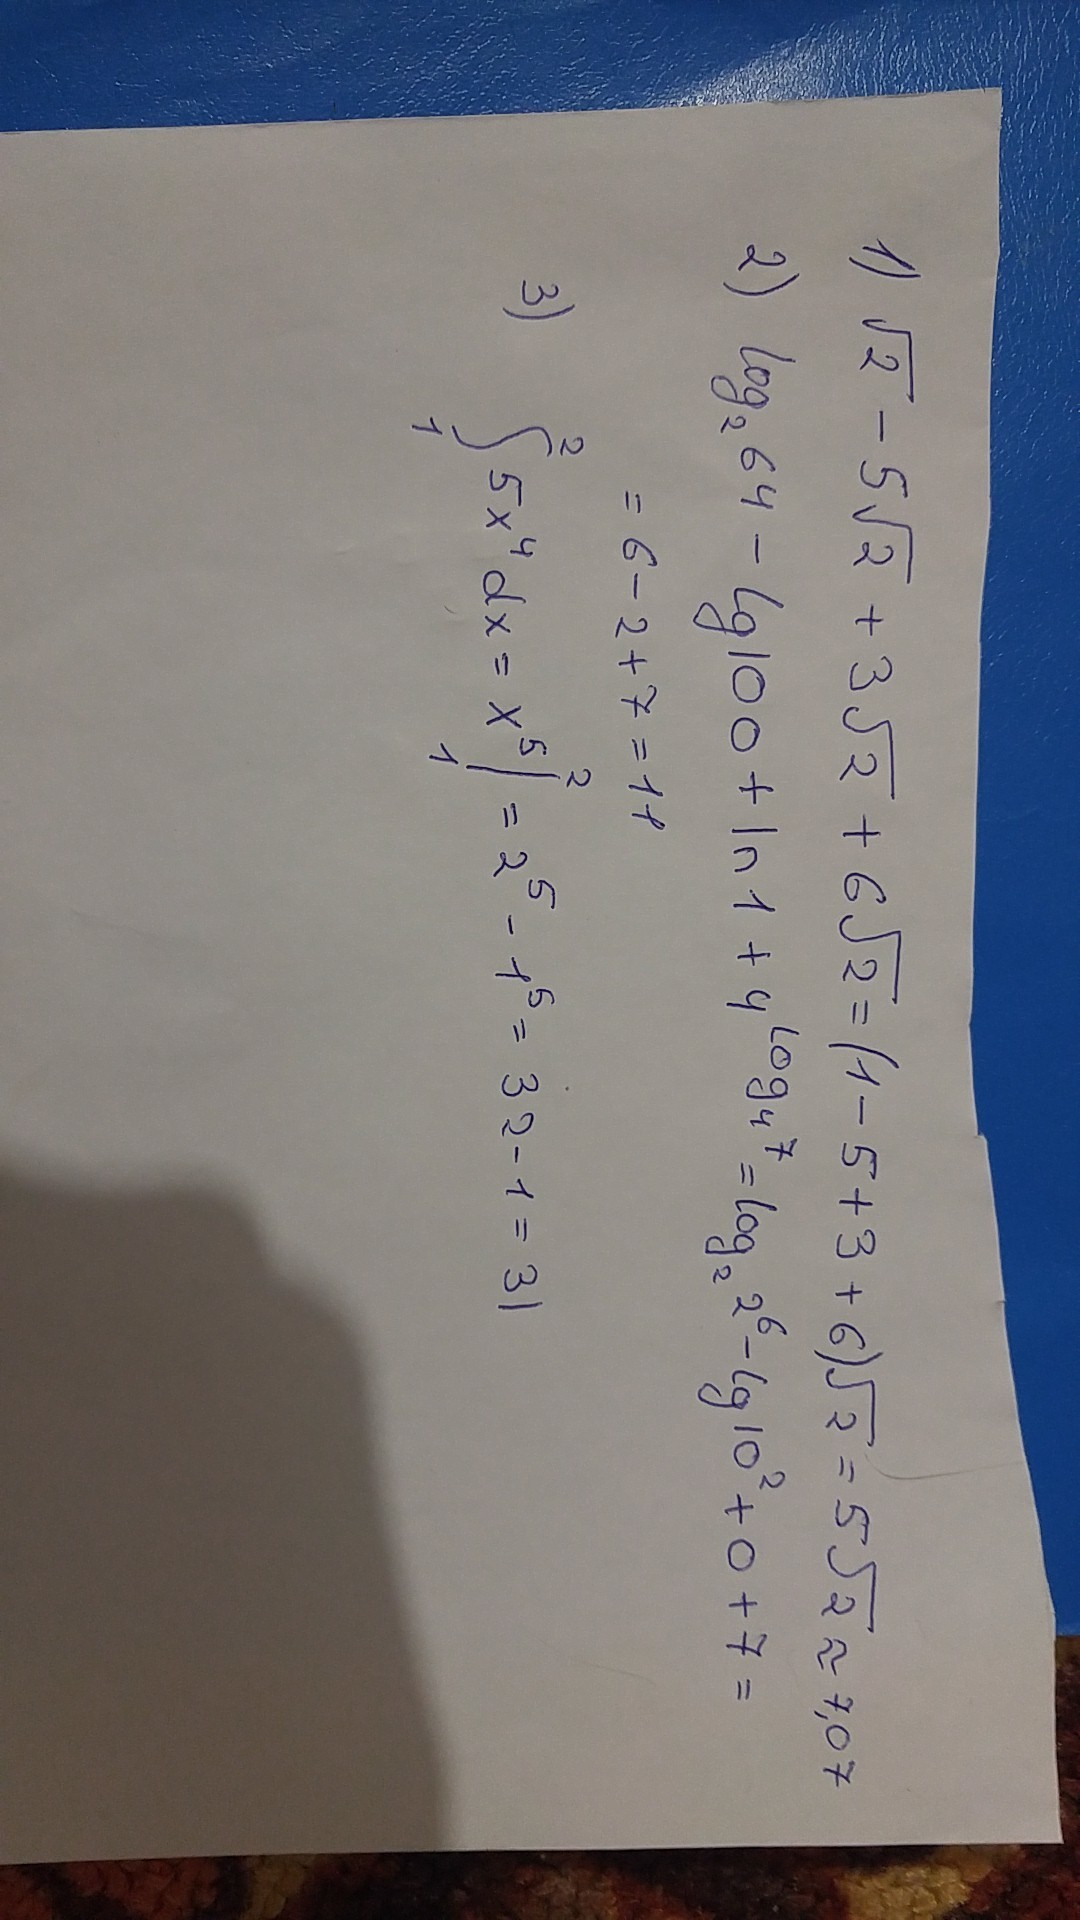 1) √2 - 5√2 + 3√2 + 6√2 = (1 - 5 + 3 + 6)√2 = 5√2 ≈ 7,07
2) log₂64 - lg100 + ln1 + 4^(log₄7) = log₂2⁶ - lg10² + 0 + 7 =
= 6 - 2 + 7 = 11
3) ∫₁² 5x⁴dx = x⁵|₁² = 2⁵ - 1⁵ = 32 - 1 = 31